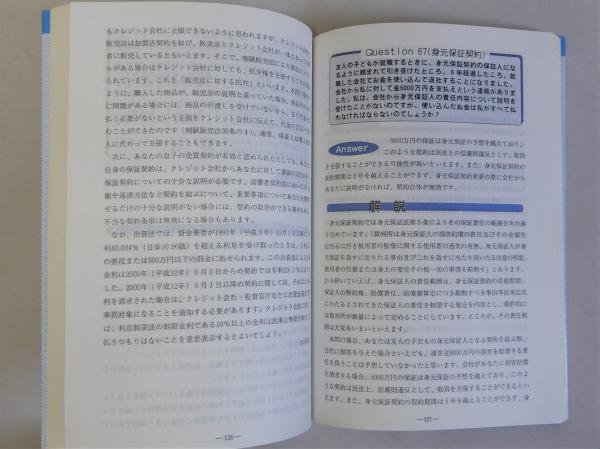 もクレジット会社に主張できないように思われますが、クレジット会
販売店は加盟店契約を結び、販売店とクレジット会社が一体となって
者に販売しているともいえます。そこで、割賦販売法により商品の
みがある場合はクレジット会社に対しても、抗弁権を主張する
られています。これを「販売店に対する抗弁」といいます。
ように、購入した商品が、販売店の説明と違っていた場合、商品の
に問題がある場合には、商品の引渡しを受けていないから、
払う必要がないという主張をクレジット会社に伝えて、代金の支払
むことができるのです（割賦販売法30条の4）。通常、保証人は
人に代わって主張することもできます。
次に、あなたの息子の売買契約が有効と認められたとしても、
自身の保証契約は、クレジット会社からあなたに対して
保証契約についての十分な説明が必要です。消費者契約法に
額や返済方法など契約を結ぶについて、重要事項についてあなたを
せるだけの十分な説明がない場合には、契約の取消ができる場合も
不当な契約条項は無効になる場合もあります。
なお、出資法では、貸金業者が1991年（平成3年）11月1日
利40.004％（日歩10.96銭）を超える利息を受け取ったときは、
の懲役または300万円以下の罰金に処せられます。この出資法による
金利は2000年（平成12年）6月1日からの契約では年利
した。2000年（平成12年）6月1日以降の契約に関しては、
利を請求された場合は、クレジット会社・監督官庁などに
事罰対象になることを通知する必要があります。クレジット会社に
は、利息制限法の制限金利である18％以上の金利は民事上無効で
払うつもりはないことを意思表示するとよいでしょう。
―126―
Question 67(身元保証契約)
友人の子どもが就職するときに、身元保証契約の保証人にな
るように頼まれて引き受けたところ、6年経過したころ、就
職した会社でお金を使い込んで退社したとのことです。会社
から私に対して金5000万円を支払えという連絡がありまし
た。私は、会社から身元保証人の責任内容について説明を
受けたことがないのですが、使い込んだお金は私がすべて払
わなければならないのでしょうか？
Answer
5000万円の保証は身元保証の予想を越えており、
このような契約は民法上の信義則違反として、取消
を主張することができる可能性が高いといえます。また、身元保証契約の
契約期間は5年を越えることができず、身元保証契約更新の際に会社から
あなたに説明がなければ、契約自体が無効です。
解説
身元保証契約では身元保証法第5条によりその保証責任の範囲を次の通
り定めています。「裁判所は身元保証人の損害賠償の責任及びその金額を
定むるに付き被用者の監督に関する使用者の過失の有無、身元保証人が身
元保証を為すに至りたる事由及びこれを為すに当たり用いたる注意の程度、
被用者の任務または身上の変化その他一切の事情を斟酌す」とあります。
から終いていえば、身元保証人の責任範囲は、身元保証契約の存続期間、
保証人の解約権、賠償責任、賠償額算定につき斟酌すべき事由等従来広汎
にわたるとされてきた保証人の責任を制限する規定を内容とし、最終的に
は裁判所が裁量によって定めることにしています。ところが、その責任範
囲は大変あいまいといえます。
本問の場合、あなたは友人の子どもの身元保証人となる契約を結ぶ際、
会社に損害を与えた場合といえども、通常金5000万円の損害を賠償する責
任を負うことは予想していなかったと思います。会社があなたに損害賠償
を請求する場合、5000万円の保証は身元保証の予想を越えており、このよ
うな契約は民法上、信義則違反として、取消を主張することができるとい
えます。また、身元保証契約の契約期間は5年を越えることができず、身
―127―